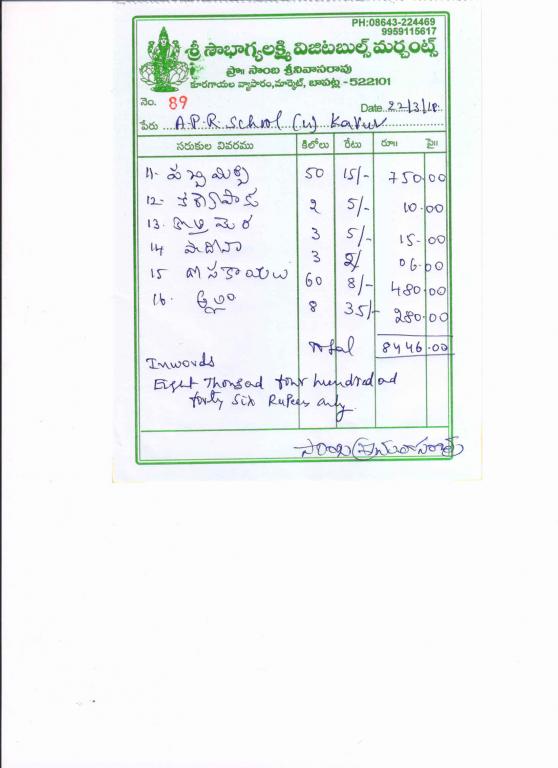 PH:08643-224469
9959115617
శ్రీ సౌభాగ్యలక్ష్మి విజిటబుల్స్ మర్చంట్స్
ప్రొ॥ సాంబ శ్రీనివాసరావు
కూరగాయల వ్యాపారం,మార్కెట్, బాపట్ల - 522101
నెం. 89 Date 22/3/18
పేరు A.P.R School (u) Kavur
సరుకుల వివరము కిలోలు రేటు రూ॥ పై॥
11. పచ్చి మిర్చి 50 15/- 750.00
12. కరివేపాకు 2 5/- 10.00
13. కొత్తిమెర 3 5/- 15-00
14 పుదీనా 3 2/ 06.00
15 దోసకాయలు 60 8/- 480.00
16. అల్లం 8 35/- 280.00
Total 8446.00
Inwords
Eight Thousad four hundred ad
forty six Rupees only.